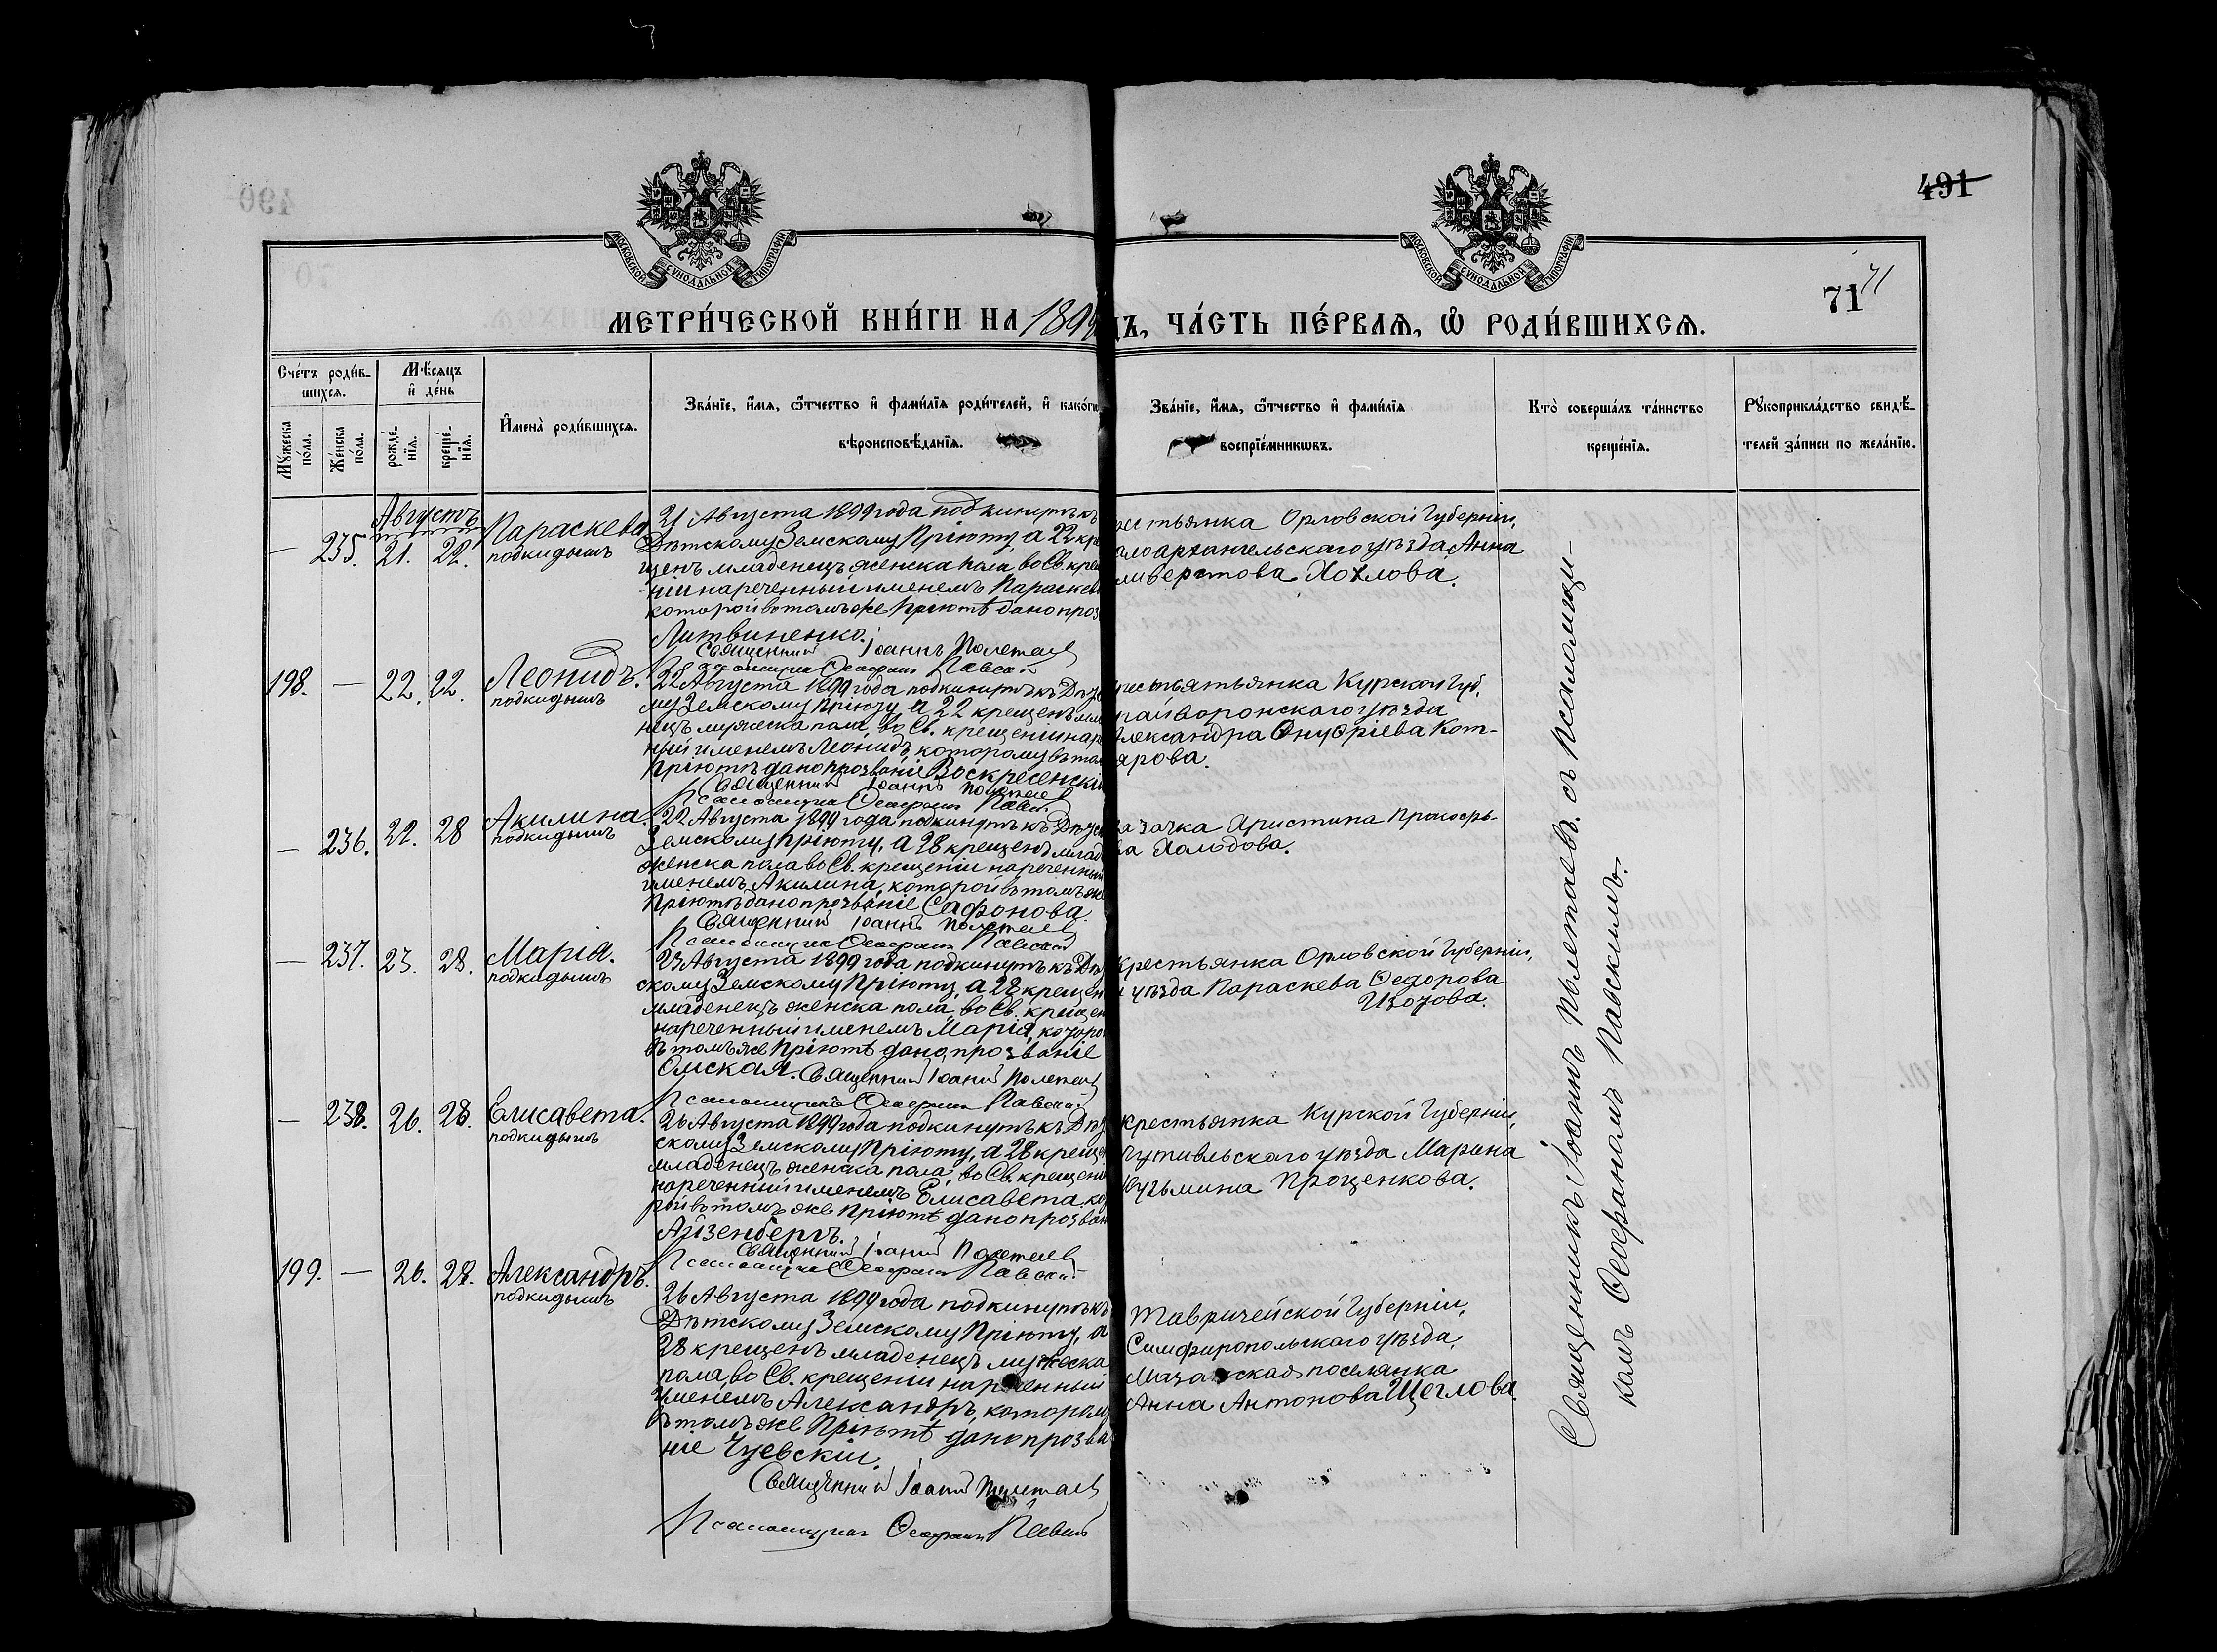 491
МОСКОВСКОЙ СѴНОДАЛЬНОЙ ТИПОГРАФІИ
МОСКОВСКОЙ СѴНОДАЛЬНОЙ ТИПОГРАФІИ
71 71
МЕТРИ́ЧЕСКОЙ КНИ́ГИ НА 1899
ДЪ, ЧА́СТЬ ПЕ́РВАѦ, Ѡ҆ РОДИ́ВШИХСѦ.
Сче́тъ роди́в-
шихсѧ.
Мꙋ́жеска по́ла.
Же́нска по́ла.
Мѣ́сѧцъ
и҆ де́нь
рожде́-
нїѧ.
креще́-
нїѧ.
И҆мена̀ роди́вшихсѧ.
Зва́нїе, и҆́мѧ, ѻ҆́тчество и҆ фами́лїѧ роди́телей, и҆ како́гѡ
вѣроисповѣ́данїѧ.
Зва́нїе, и҆́мѧ, ѻ҆́тчество и҆ фами́лїѧ
воспрїе́мникѡвъ.
Кто̀ соверша́лъ та́инство
креще́нїѧ.
Рꙋкоприкла́дство свидѣ́-
телей за́писи по жела́нїю.
Августъ
— 235. 21. 22. Параскева
подкидышъ
21 Августа 1899 года подкинутъ къ
Дѣтскому Земскому Пріюту, а 22 кре
щенъ младенецъ женска пола, во Св. крещ
ніи нареченный именемъ Параскев
которой въ томъ же Пріютѣ дано проз
Литвиненко.
Священникъ Іоаннъ Полетаев
Псаломщикъ Ѳеофанъ Павскій
рестьянка Орловской Губерніи,
алоархангельскаго уѣзда Анна
ливерстова Хохлова.
198. — 22. 22. Леонидъ.
подкидышъ
22 Августа 1899 года подкинутъ къ Дѣтс
му Земскому Пріюту, а 22 крещенъ мла
нецъ мужеска пола, во Св. крещеніи нар
ный именемъ Леонидъ, которому въ том
Пріютѣ дано прозваніе Воскресенскі
Священникъ Іоаннъ Полетаев
Псаломщикъ Ѳеофанъ Павскій
рестьятьянка Курской Губ.
райворонскаго уѣзда
лександра Онуфріева Кот-
ярова.
— 236. 22. 28 Акилина.
подкидышъ
22 Августа 1899 года подкинутъ къ Дѣтс
Земскому Пріюту, а 28 крещенъ млад
женска пола во Св. крещеніи нареченный
именемъ Акилина, которой въ томъ же
Пріютѣ дано прозваніе Сафонова.
Священникъ Іоаннъ Полетаев
Псаломщикъ Ѳеофанъ Павскій
азачка Христина Прокофь-
ва Холодова.
— 237. 23. 28. Марія.
подкидышъ
23 Августа 1899 года подкинутъ къ Дѣт
скому Земскому Пріюту, а 28 крещен
младенецъ женска пола, во Св. крещен
нареченный именемъ Марія, которо
въ томъ же Пріютѣ дано прозваніе
Омская. Священникъ Іоаннъ Полетаев
Псаломщикъ Ѳеофанъ Павскій
Крестьянка Орловской Губерніи,
уѣзда Параскева Ѳедорова
Изотова.
— 238. 26. 28. Елисавета.
подкидышъ
26 Августа 1899 года подкинутъ къ Дѣт
скому Земскому Пріюту, а 28 креще
младенецъ женска пола, во Св. крещені
нареченный именемъ Елисавета, кото
рой въ томъ же Пріютѣ дано прозван
Айзенбергъ.
Священникъ Іоаннъ Полетаев
Псаломщикъ Ѳеофанъ Павскій
Крестьянка Курской Губерніи,
Путивльскаго уѣзда Марина
Кузьмина Проценкова.
199. — 26. 28. Александръ.
подкидышъ
26 Августа 1899 года подкинутъ къ
Дѣтскому Земскому Пріюту, а
28 крещенъ младенецъ мужеска
пола, во Св. крещеніи нареченный
именемъ Александръ, котором
въ томъ же Пріютѣ дано прозва
ніе Чуевскій.
Священникъ Іоаннъ Полетаев
Псаломщикъ Ѳеофанъ Павскій
Таврической Губерніи,
Симферопольскаго уѣзда,
поселянка
Анна Антонова Щеглова.
Священникъ Іоаннъ Полетаевъ съ псаломщи-
комъ Ѳеофаномъ Павскимъ.